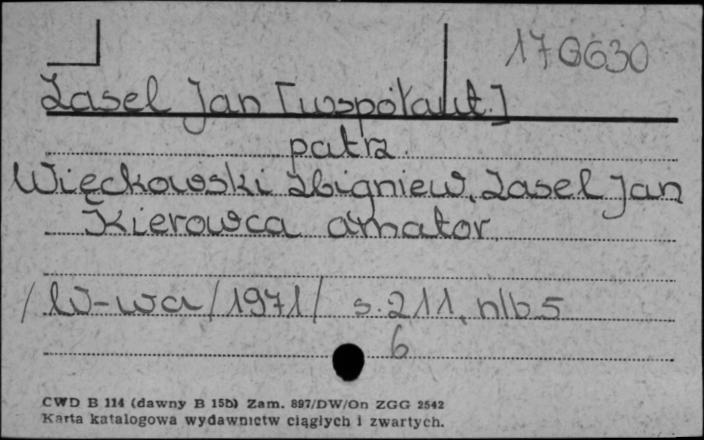 170630
Zasel Jan [współaut.]
patrz
Więckowski Zbigniew, Zasel Jan
Kierowca amator
/W-wa/1971/ s. 211, nlb. 5
6
CWD B 114 (dawny B 15b) Zam. 897/DW/On ZGG 2542
Karta katalogowa wydawnictw ciągłych i zwartych.